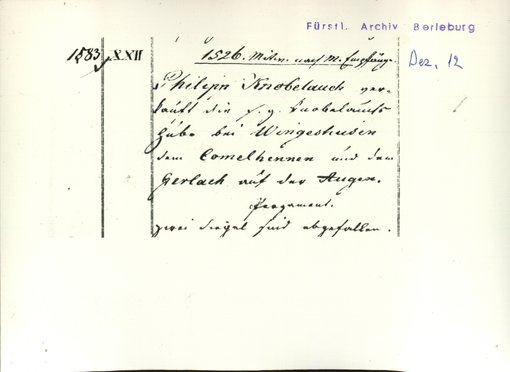 Fürstl. Archiv Berleburg
Dez. 12
1583, XXII
1526. Mitw. nach M. Empfäng.
Philipp Knobelauch ver-
kauft die s. g. Knobelauchs
Hube bei Wingeshusen
dem Comelhennen und dem
Gerlach auf der Augen.
Pergament.
zwei Siegel sind abgefallen.